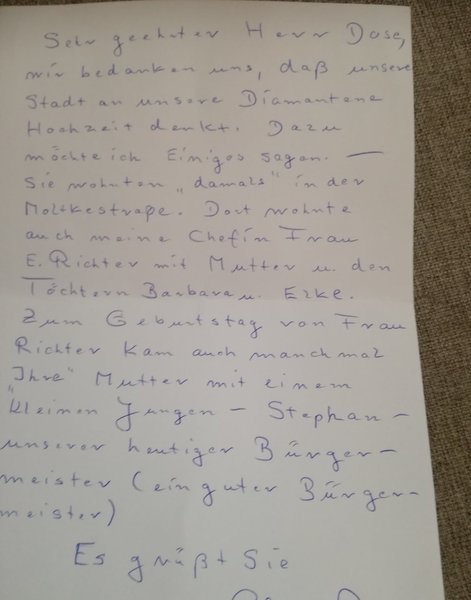 Sehr geehrter Herr Dose,
wir bedanken uns, daß unsere
Stadt an unsere Diamantene
Hochzeit denkt. Dazu
möchte ich Einiges sagen. —
Sie wohnten „damals" in der
Moltkestraße. Dort wohnte
auch meine Chefin Frau
E. Richter mit Mutter u. den
Töchtern Barbara u. Elke.
Zum Geburtstag von Frau
Richter kam auch manchmal
„Ihre" Mutter mit einem
kleinen Jungen – Stephan –
unserer heutiger Bürger-
meister (ein guter Bürger-
meister)
Es grüßt Sie